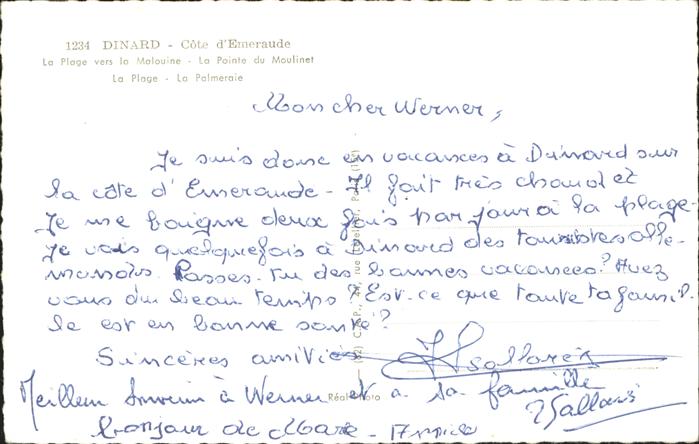 1234 DINARD - Côte d'Emeraude
La Plage vers la Malouine - La Pointe du Moulinet
La Plage - La Palmeraie
Mon cher Werner,
Je suis donc en vacances à Dinard sur
la côte d'Emeraude - Il fait très chaud et
Je me baigne deux fois par jour à la plage.
Je vois quelquefois à Dinard des touristes alle-
mands. Passes-tu des bonnes vacances? Avez
vous du beau temps? Est-ce que toute ta famil-
le est en bonne santé?
Sincères amitiés
Meilleur Souvenir à Werner et a sa famille
bonjour de Marc -
Réal-Photo